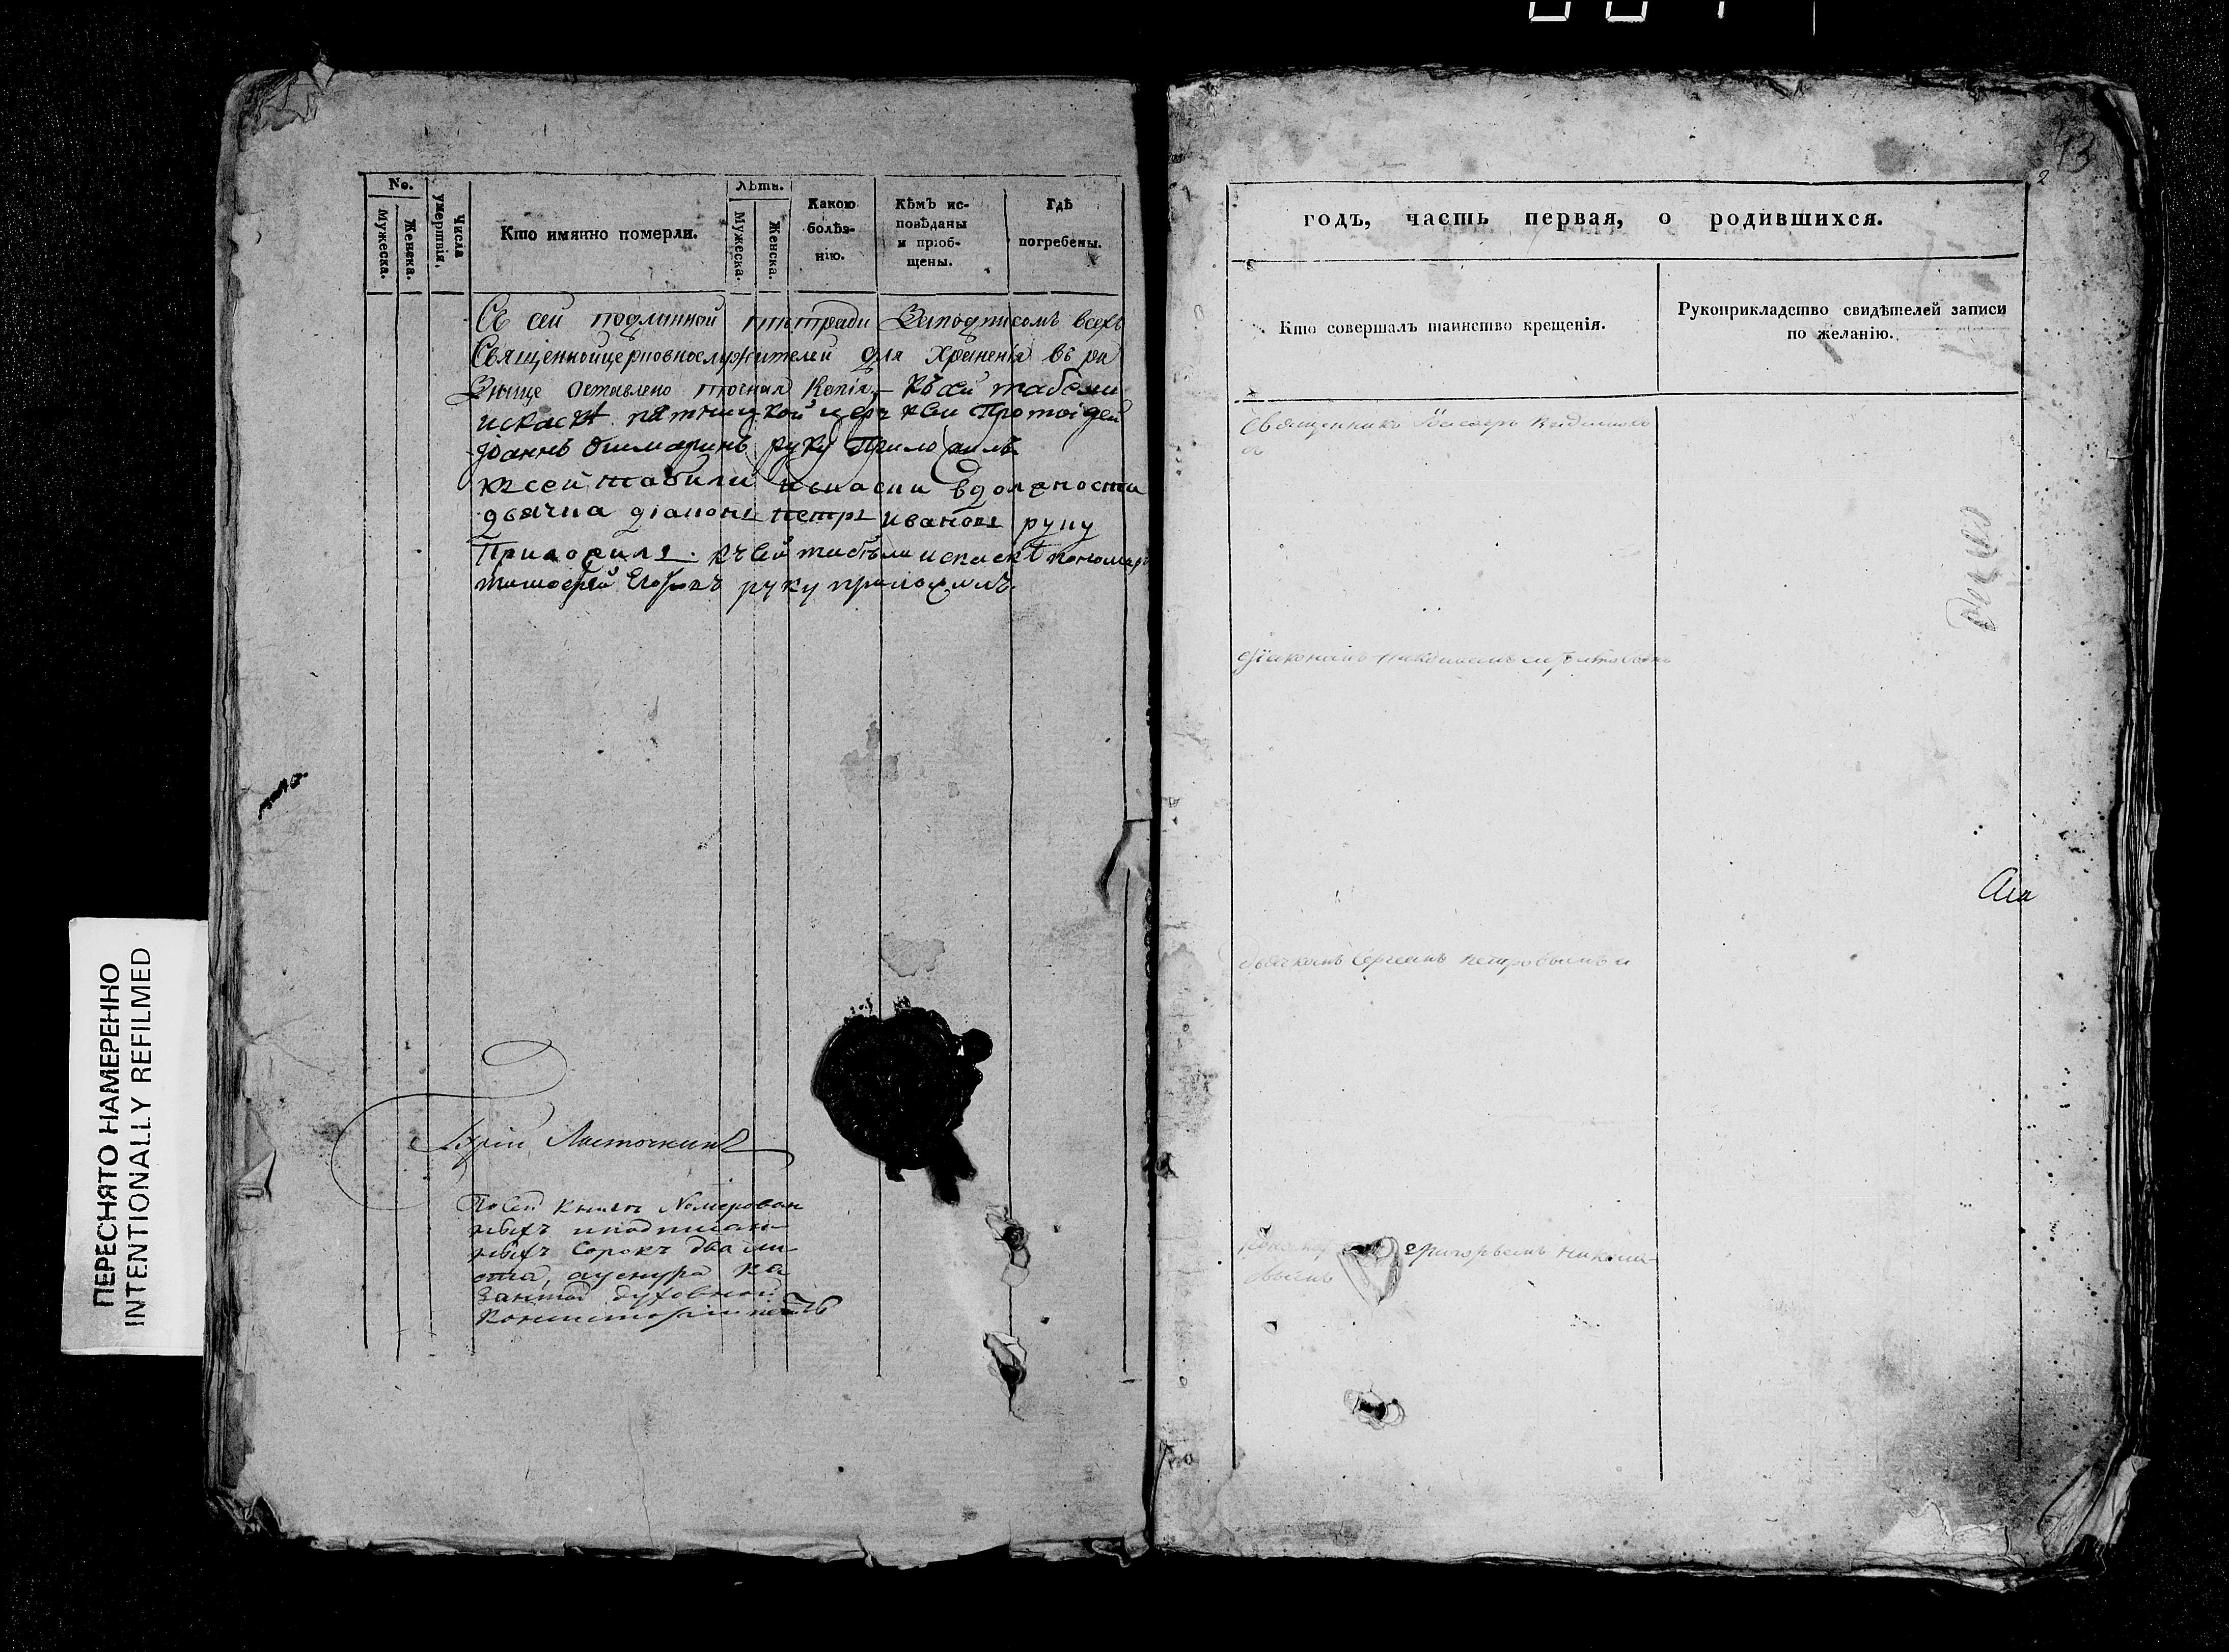 No.
Мужеска.
Женска.
Числа умершія.
Кто имянно померли.
Лѣта.
Мужеска.
Женска.
Какою
болѣз-
нію.
Кѣмъ ис-
повѣданы
и пріоб-
щены.
Гдѣ
погребены.
Съ сей подлинной тетради Заподписомъ всехъ
Священноицерковнослужителей для храненія въ ри
Знице оставлено точная Копія - Къ сей табели
искаскѣ пятницкой церкви Протоіерей
Іоаннъ руку Приложилъ
Ксей табили искаски вдолжности
дьячка діаконъ петръ ивановъ руку
Приложилъ. Къ сей табели искаскѣ пономарь
тимофей Егоровъ руку приложилъ.
Ласточкинъ
По сей книге Номерован
ныхъ иподписан-
ныхъ Сорокъ два ли-
ста, ка
занской духовной
Консисторіи печать
ПЕРЕСНЯТО НАМЕРЕННО
INTENTIONALLY REFILMED
43
2
годъ, часть первая, о родившихся.
Кто совершалъ таинство крещенія.
Рукоприкладство свидѣтелей записи
по желанію.
Священникъ
діакономъ
дьячкомъ Сергеемъ петровымъ и
григорьемъ никола-